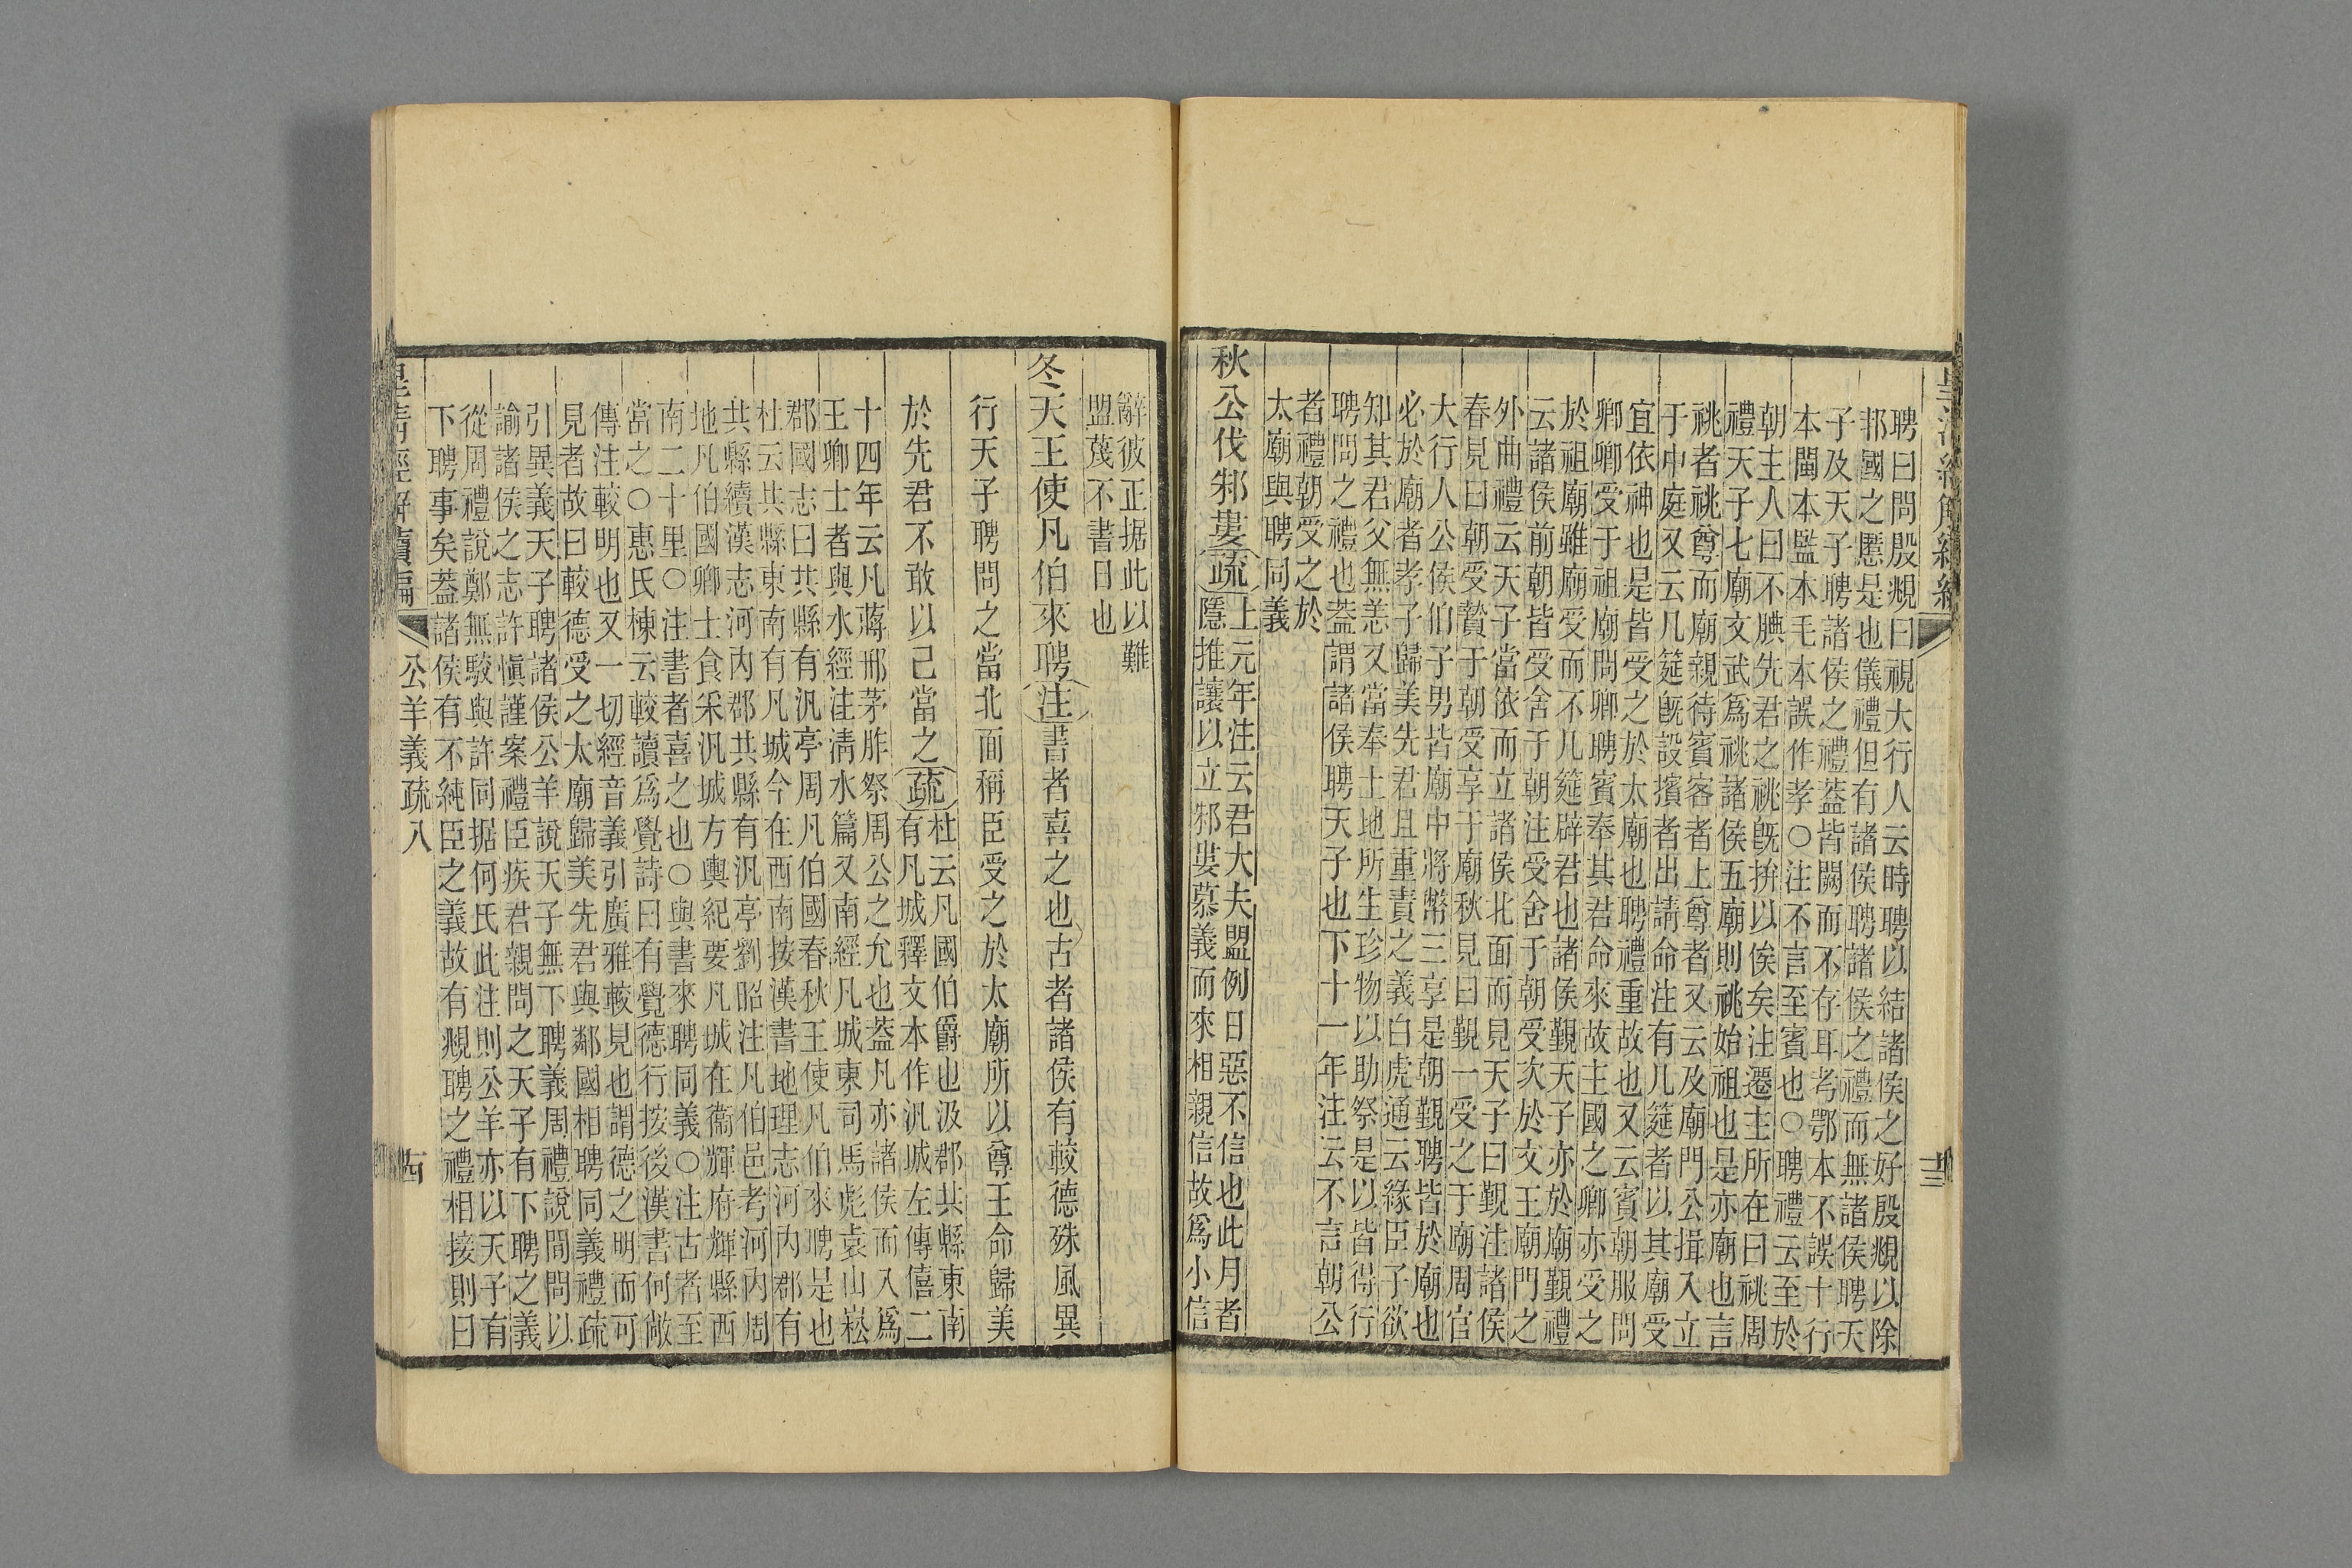 聘曰問殷覜曰視大行人云時聘以結諸侯之好殷覜以除
邦國之慝是也儀禮但有諸侯聘諸侯之禮而無諸侯聘天
子及天子聘諸侯之禮蓋皆闕而不存耳考鄂本不誤十行
本閩本監本毛本誤作孝○注不言至賓也○聘禮云至於
朝主人曰不腆先君之祧旣拚以俟矣注遷主所在曰祧周
禮天子七廟文武爲祧諸侯五廟則祧始祖也是亦廟也言
祧者祧尊而廟親待賓客者上尊者又云及廟門公揖入立
于中庭又云几筵旣設擯者出請命注有几筵者以其廟受
宜依神也是皆受之於太廟也聘禮重故也又云賓朝服問
卿卿受于祖廟問卿聘賓奉其君命來故主國之卿亦受之
於祖廟雖廟受而不几筵辟君也諸侯覲天子亦於廟覲禮
云諸侯前朝皆受舍于朝注受舍于朝受次於文王廟門之
外曲禮云天子當依而立諸侯北面而見天子曰覲注諸侯
春見曰朝受贄于朝受享于廟秋見曰覲一受之于廟周官
大行人公侯伯子男皆廟中將幣三享是朝覲聘皆於廟也
必於廟者孝子歸美先君且重責之義白虎通云緣臣子欲
知其君父無恙又當奉土地所生珍物以助祭是以皆得行
聘問之禮也蓋謂諸侯聘天子也下十一年注云不言朝公
者禮朝受之於
太廟與聘同義
秋公伐邾婁疏上元年注云君大夫盟例日惡不信也此月者
隱推讓以立邾婁慕義而來相親信故爲小信
辭彼正据此以難
盟蔑不書日也
冬天王使凡伯來聘注書者喜之也古者諸侯有較德殊風異
行天子聘問之當北面稱臣受之於太廟所以尊王命歸美
於先君不敢以己當之疏杜云凡國伯爵也汲郡共縣東南
有凡城釋文本作汎城左傳僖二
十四年云凡蔣邢茅胙祭周公之允也蓋凡亦諸侯而入爲
王卿士者與水經注淸水篇又南經凡城東司馬彪袁山崧
郡國志曰共縣有汎亭周凡伯國春秋王使凡伯來聘是也
杜云共縣東南有凡城今在西南按漢書地理志河內郡有
共縣續漢志河內郡共縣有汎亭劉昭注凡伯邑考河內周
地凡伯國卿士食采汎城方輿紀要凡城在衞輝府輝縣西
南二十里○注書者喜之也○與書來聘同義○注古者至
當之○惠氏棟云較讀爲覺詩曰有覺德行按後漢書何敞
傳注較明也又一切經音義引廣雅較見也謂德之明而可
見者故曰較德受之太廟歸美先君與鄰國相聘同義禮疏
引異義天子聘諸侯公羊說天子無下聘義周禮說間問以
諭諸侯之志許愼謹案禮臣疾君親問之天子有下聘之義
從周禮說鄭無駁與許同据何氏此注則公羊亦以天子有
下聘事矣蓋諸侯有不純臣之義故有覜聘之禮相接則曰
皇淸經解續編 公羊義疏八